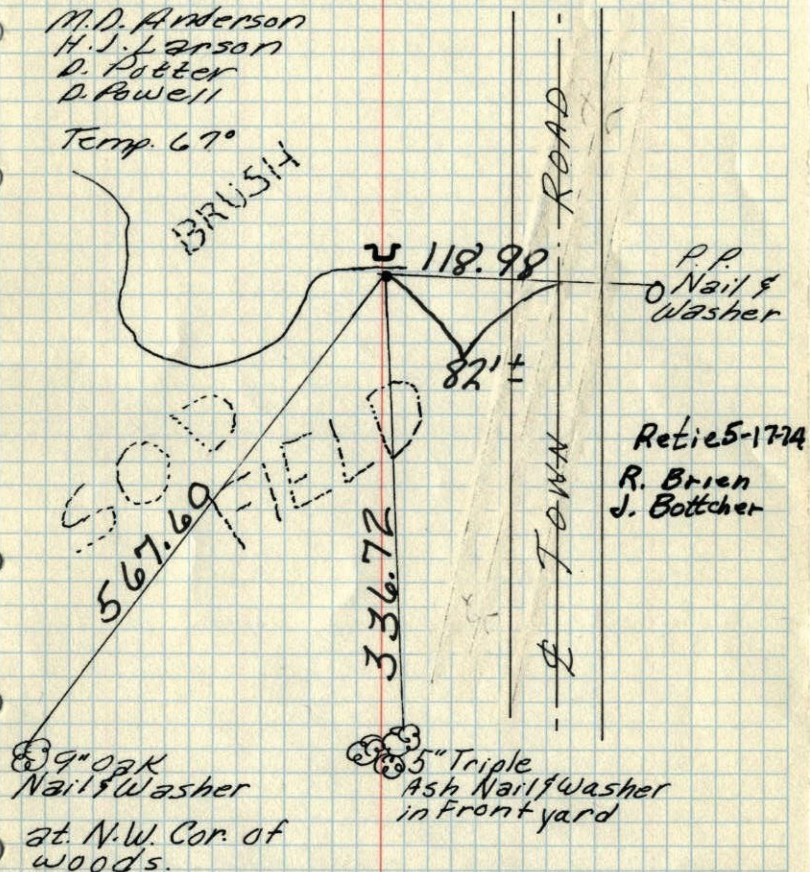 M.D. Anderson
H.J. Larson
D. Potter
D. Powell
Temp. 67°
BRUSH
118.98
P.P.
Nail &
Washer
82'±
SOD
FIELD
567.60
336.72
℄ TOWN ROAD
Retie 5-17-74
R. Brien
J. Bottcher
9" Oak
Nail & Washer
at N.W. Cor. of
woods.
5" Triple
Ash Nail & Washer
in Front yard